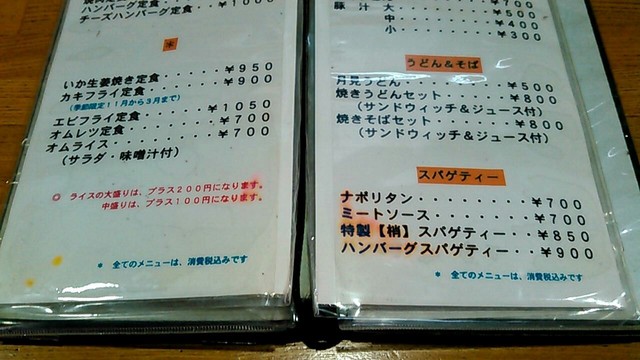 ハンバーグ定食・・・・・￥１０００
チーズハンバーグ定食・・・
＊
いか生姜焼き定食・・・・・￥９５０
カキフライ定食・・・・・・￥９００
（季節限定１１月から３月まで）
エビフライ定食・・・・・￥１０５０
オムレツ定食・・・・・・・￥７００
オムライス・・・・・・・・￥７００
（サラダ・味噌汁付）
◎ ライスの大盛りは、プラス２００円になります。
中盛りは、プラス１００円になります。
＊ 全てのメニューは、消費税込みです
￥７００
豚汁 大・・・・・・・・￥５００
中・・・・・・・・￥４００
小・・・・・・・・￥３００
うどん＆そば
月見うどん・・・・・・・・￥５００
焼きうどんセット・・・・・￥８００
（サンドウィッチ＆ジュース付）
焼きそばセット・・・・・・￥８００
（サンドウィッチ＆ジュース付）
スパゲティー
ナポリタン・・・・・・・・￥７００
ミートソース・・・・・・・￥７００
特製【梢】スパゲティー・・￥８５０
ハンバーグスパゲティー・・￥９００
＊ 全てのメニューは、消費税込みです